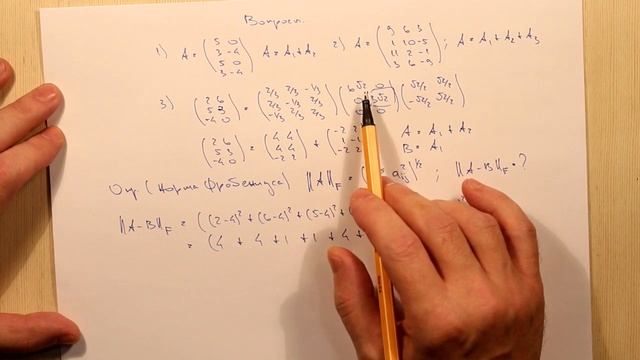 Вопросы.
1) A = (5 0 / 3 -4 / 5 0 / 3 -4) A = A₁ + A₂ 2) A = (9 6 3 / 1 10 -5 / 11 2 -1 / 3 6 -9) ; A = A₁ + A₂ + A₃
3) (2 6 / 5 3 / -4 0) = (2/3 2/3 -1/3 / 2/3 -1/3 2/3 / -1/3 2/3 2/3) (6√2 0 / 0 3√2 / 0 0) (√2/2 √2/2 / -√2/2 √2/2)
(2 6 / 5 3 / -4 0) = (4 4 / 4 4 / -2 2) + (-2 2 / 1 -1 / -2 2 A = A₁ + A₂
B = A₁
Опр (Норма Фробениуса) ||A||_F = ( a²ij)^1/2 ; ||A-B||_F = ?
||A-B||_F = ((2-4)² + (6-4)² + (5-4)² +
= (4 + 4 + 1 + 1 + 4 +